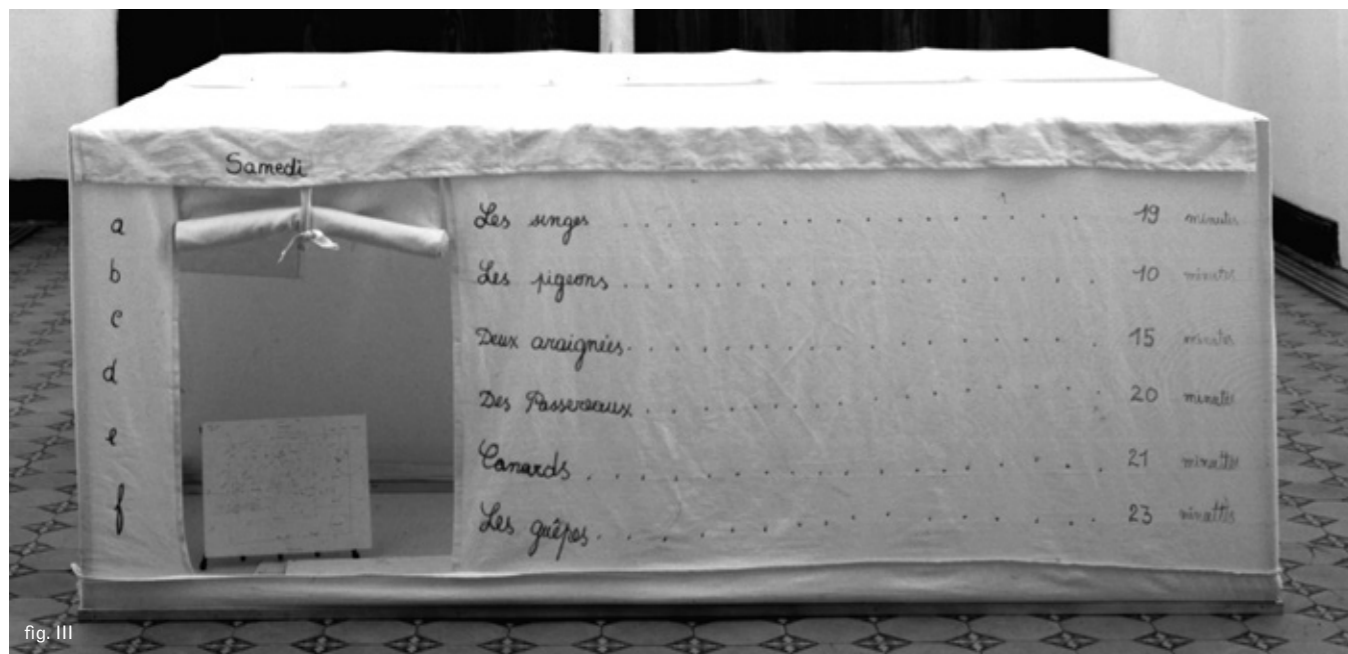 Samedi
a
b
c
d
e
f
Les singes . . . . . . . . . . . . . . . . 19 minutes
Les pigeons . . . . . . . . . . . . . . . . 10 minutes
Deux araignées . . . . . . . . . . . . . . . . 15 minutes
Des Passereaux . . . . . . . . . . . . . . . . 20 minutes
Canards . . . . . . . . . . . . . . . . 21 minuttes
Les guêpes . . . . . . . . . . . . . . . . 23 minuttes
fig. III